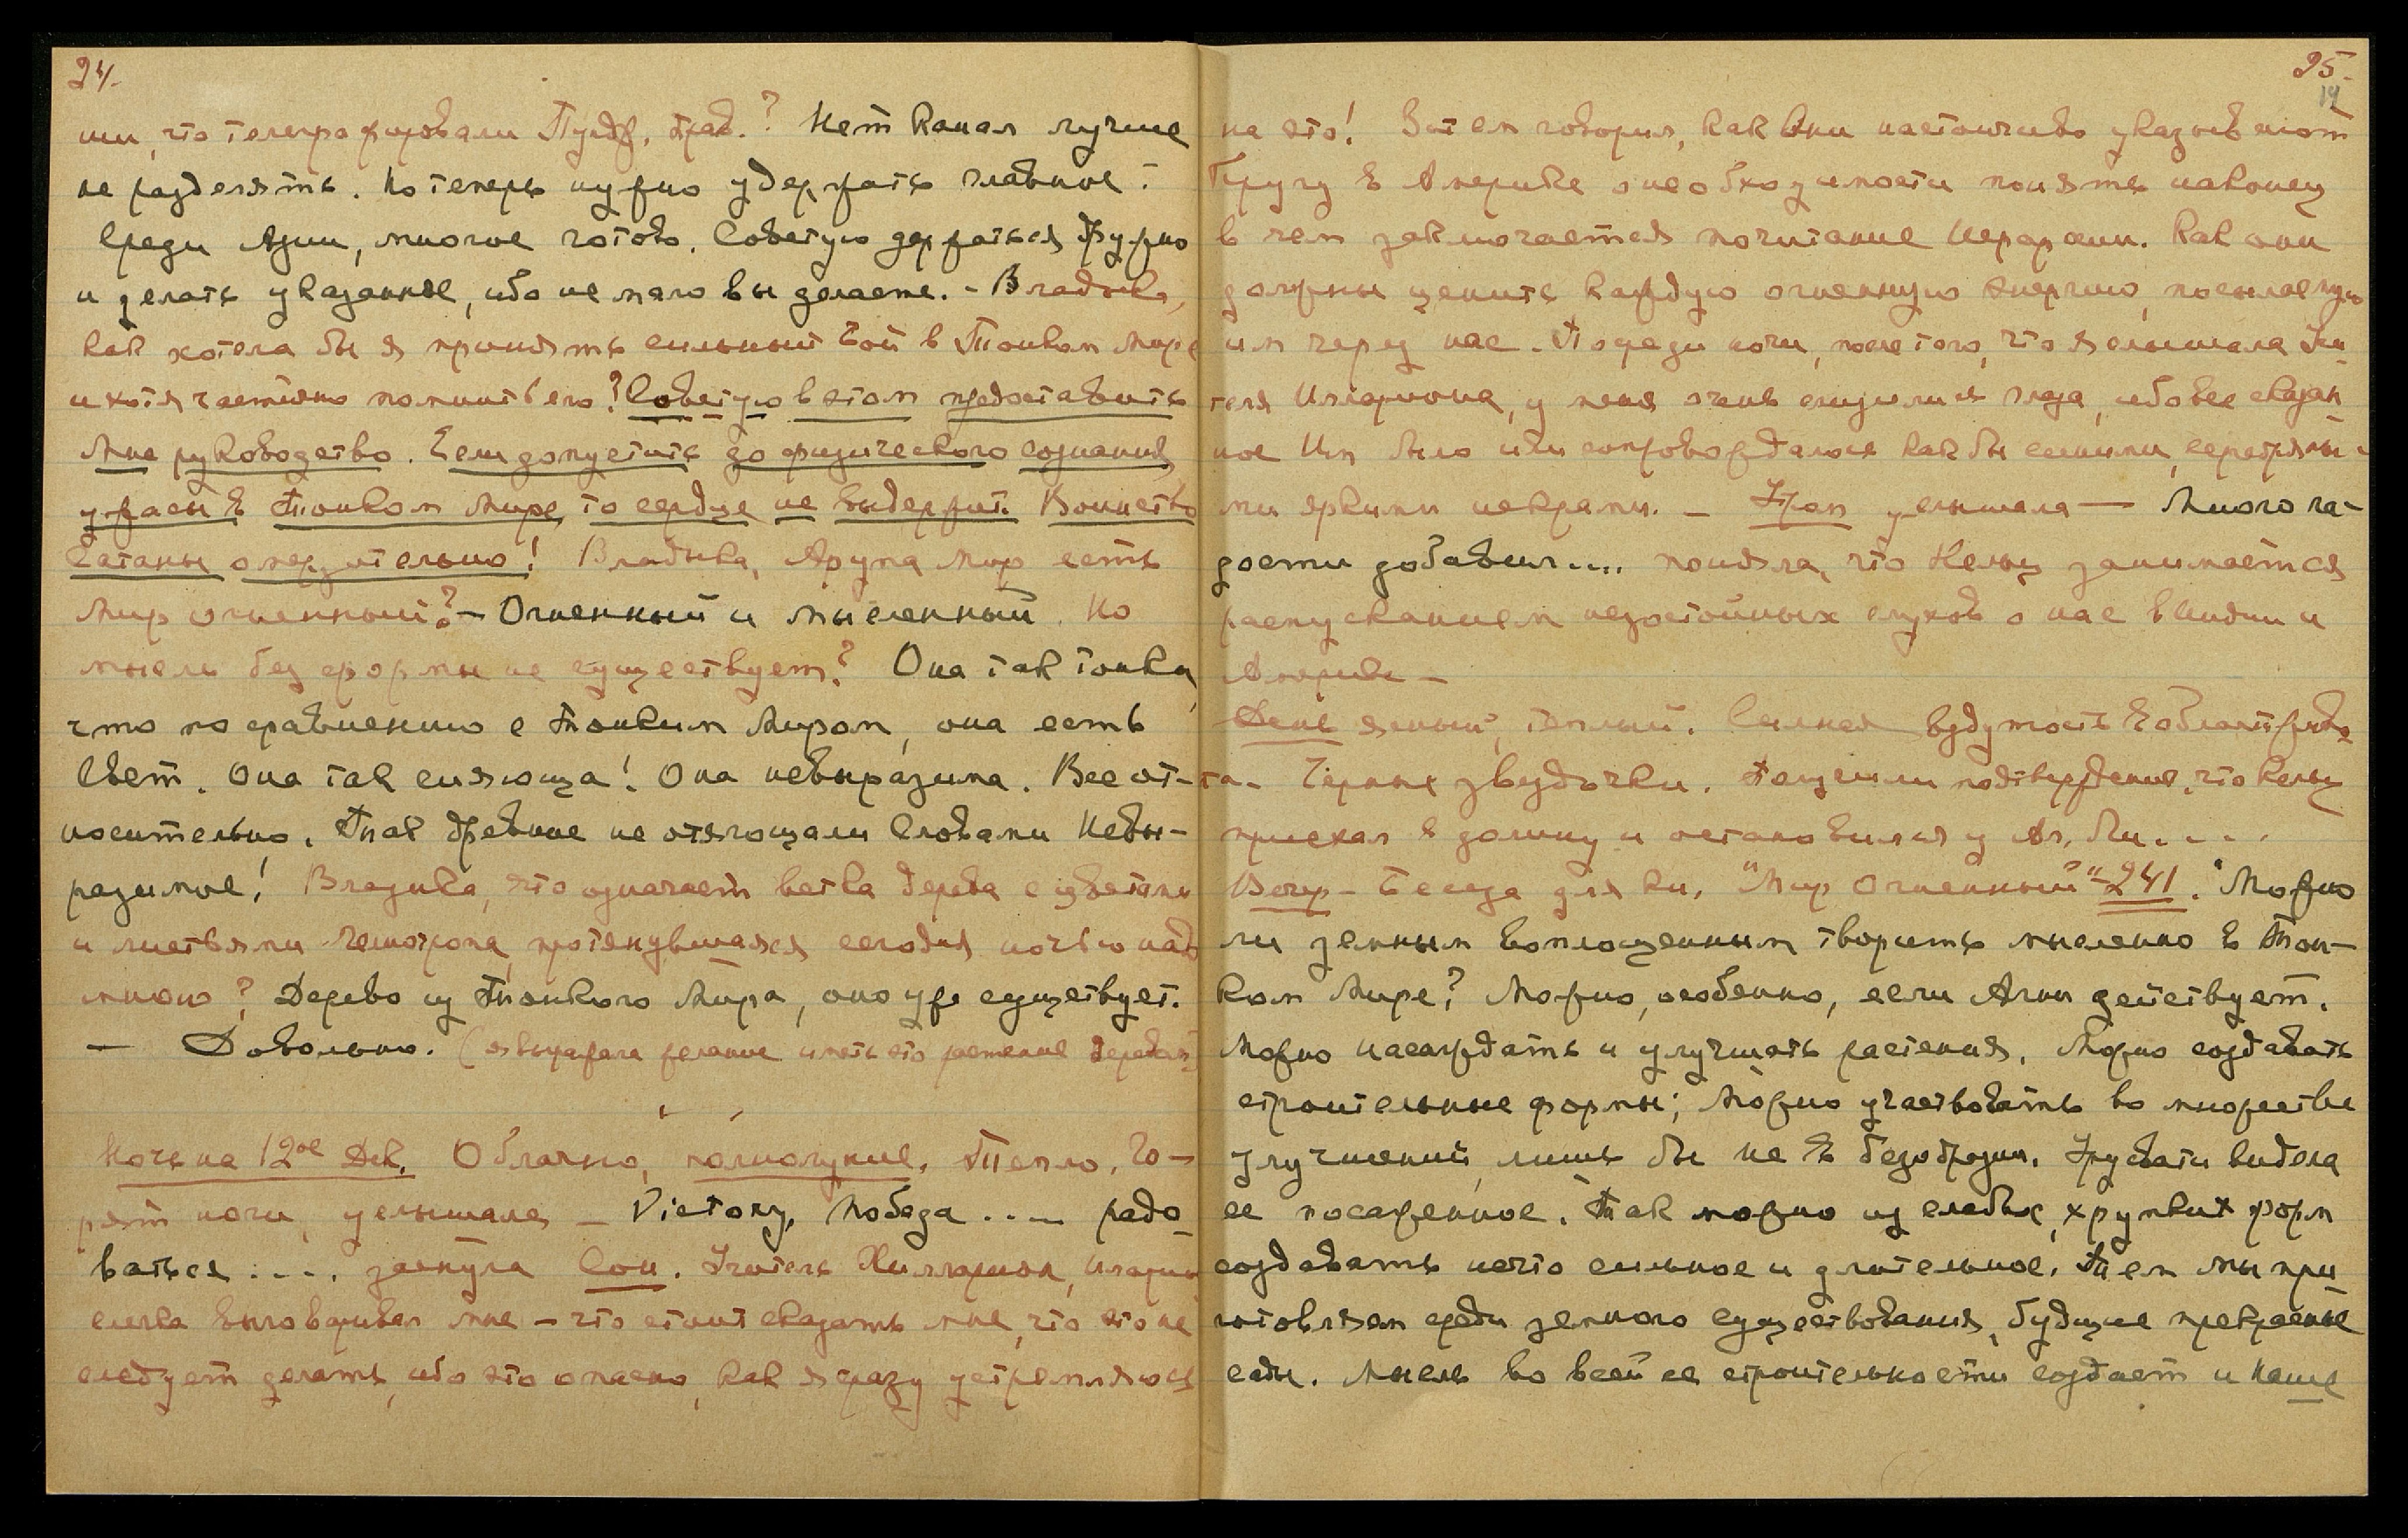 24.
ми, что телеграфировали Пундж. прав.? Нет канал лучше
не разделять. Но теперь нужно удержать главное.
Среди Азии, многое готово. Советую держаться дружно
и делать указанное, ибо не мало вы делаете. - Владыка,
как хотела бы я принять сильный бой в Тонком Мире
и хотя частично помнить его? Советую в этом предоставить
Мне руководство. Если допустить до физического сознания
ужасы в Тонком Мире, то сердце не выдержит. Воинство
Сатаны омерзительно! Владыка, Арупа Мир есть
Мир огненный? - Огненный и мысленный. Но
мысль без формы не существует? Она так тонка,
что по сравнению с Тонким Миром, она есть
Свет. Она так сияюща! Она невыразима. Все от-
носительно. Так древние не отягощали Словами Невы-
разимое! Владыка, что означает ветка дерева с цветами
и листьями протянувшаяся сегодня ночью надо
мною? Дерево из Тонкого Мира, оно уже существует.
— Довольно. (я выражала желание иметь это растение дерева)
Ночь на 12ое Дек. Облачно, полнолуние. Тепло. Го-
рят ночи, услышала — Victory, Победа .... радо-
ваться .... заснула Сон. Учитель Хилларион, Иларион
слегка выговаривал мне — что стоит сказать мне, что это не
следует делать, ибо это опасно, как я сразу устремляюсь
25.
14
на это! Затем говорил, как Они настойчиво указывают
Другу в Америке о необходимости понять наконец
в чем заключается почитание Иерархии. Как они
должны ценить каждую огненную энергию, посылаемую
им через нас. Посреди ночи, после того, что я слышала Учи-
теля Илариона, у меня очень слезились глаза, ибо все сказан-
ное Им было или сопровождалось как бы синими, серебряны-
ми яркими искрами. — Утром услышала — Много ра-
дости добавил.... поняла, что Кельц занимается
распусканием недостойных слухов о нас в Индии и
Америке —
День ясный, теплый. Сильная вздутость в области живо-
та. Черные звездочки. Получили подтверждение, что Кельц
приехал в долину и остановился у
Вечер — Беседа для кн. "Мир Огненный" — 241. "Можно
ли земным воплощенным творить мысленно в Тон-
ком Мире? Можно, особенно, если Агни действует.
Можно насаждать и улучшать растения. Можно создавать
строительные формы; Можно участвовать во множестве
улучшений, лишь бы не в безобразии. Урусвати видела
ее посаженное. Так можно из слабых, хрупких форм
создавать нечто сильное и длительное. Тем мы при-
готовляем среди земного существования, будущие прекрасные
сады. Мысль во всей ее строительности создает и Наше